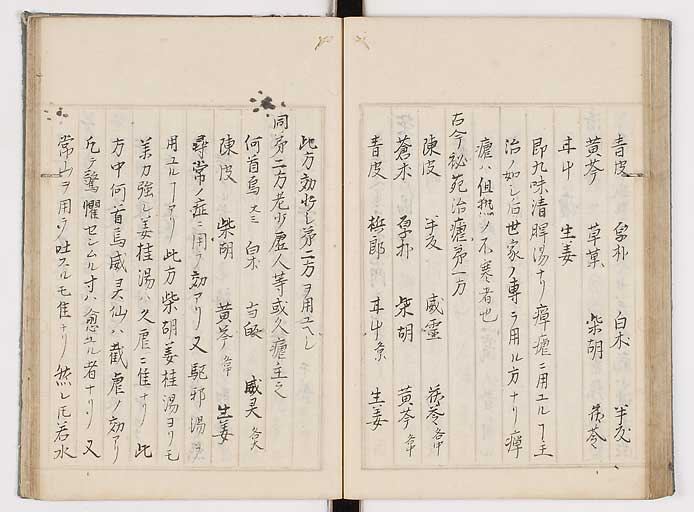 青皮 厚朴 白朮 半夏
黄芩 草菓 柴胡 茯苓
甘草 生姜
即九味清脾湯ナリ瘴瘧ニ用ユルヿ主
治ノ如シ后世家ノ専ラ用ル方ナリ瘴
瘧ハ但熱ノ不寒者也
古今秘苑治瘧第一方
陳皮 半夏 威霊 茯苓各中
蒼朮 厚朴 柴胡 黄芩各中
青皮 梹郎 甘草 生姜
此方効少シ第二方ヲ用ユヘシ
同第二方老少虚人等或久瘧主之
何首烏大三 白朮 当皈 威灵各大
陳皮 柴胡 黄芩各中 生姜
尋常ノ症ニ用テ効アリ又駆邪湯ヲ
用ユルヿアリ此方柴胡姜桂湯ヨリモ
薬力強シ姜桂湯ハ久瘧ニ佳ナリ此
方中何首烏威灵仙ハ截瘧ノ効アリ
凡テ驚懼セシムル寸ハ愈ユル者ナリ又
常山ヲ用テ吐スルモ佳ナリ然レ𪜈若水